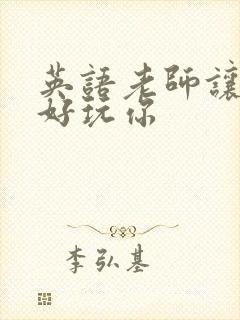 英語老師讓
好玩你
李弘基